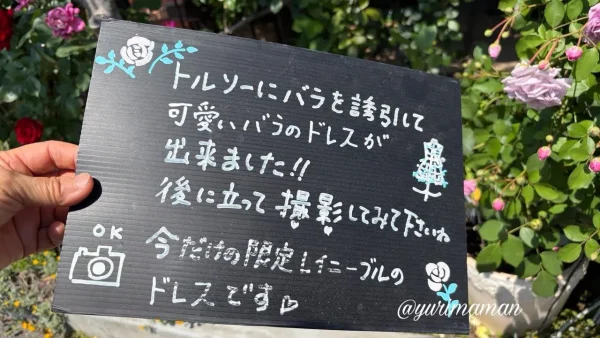 トルソーにバラを誘引して
可愛いバラのドレスが
出来ました!!
後に立って撮影してみて下さいね
OK
今だけの限定レイニーブルの
ドレスです♡
@yurimaman